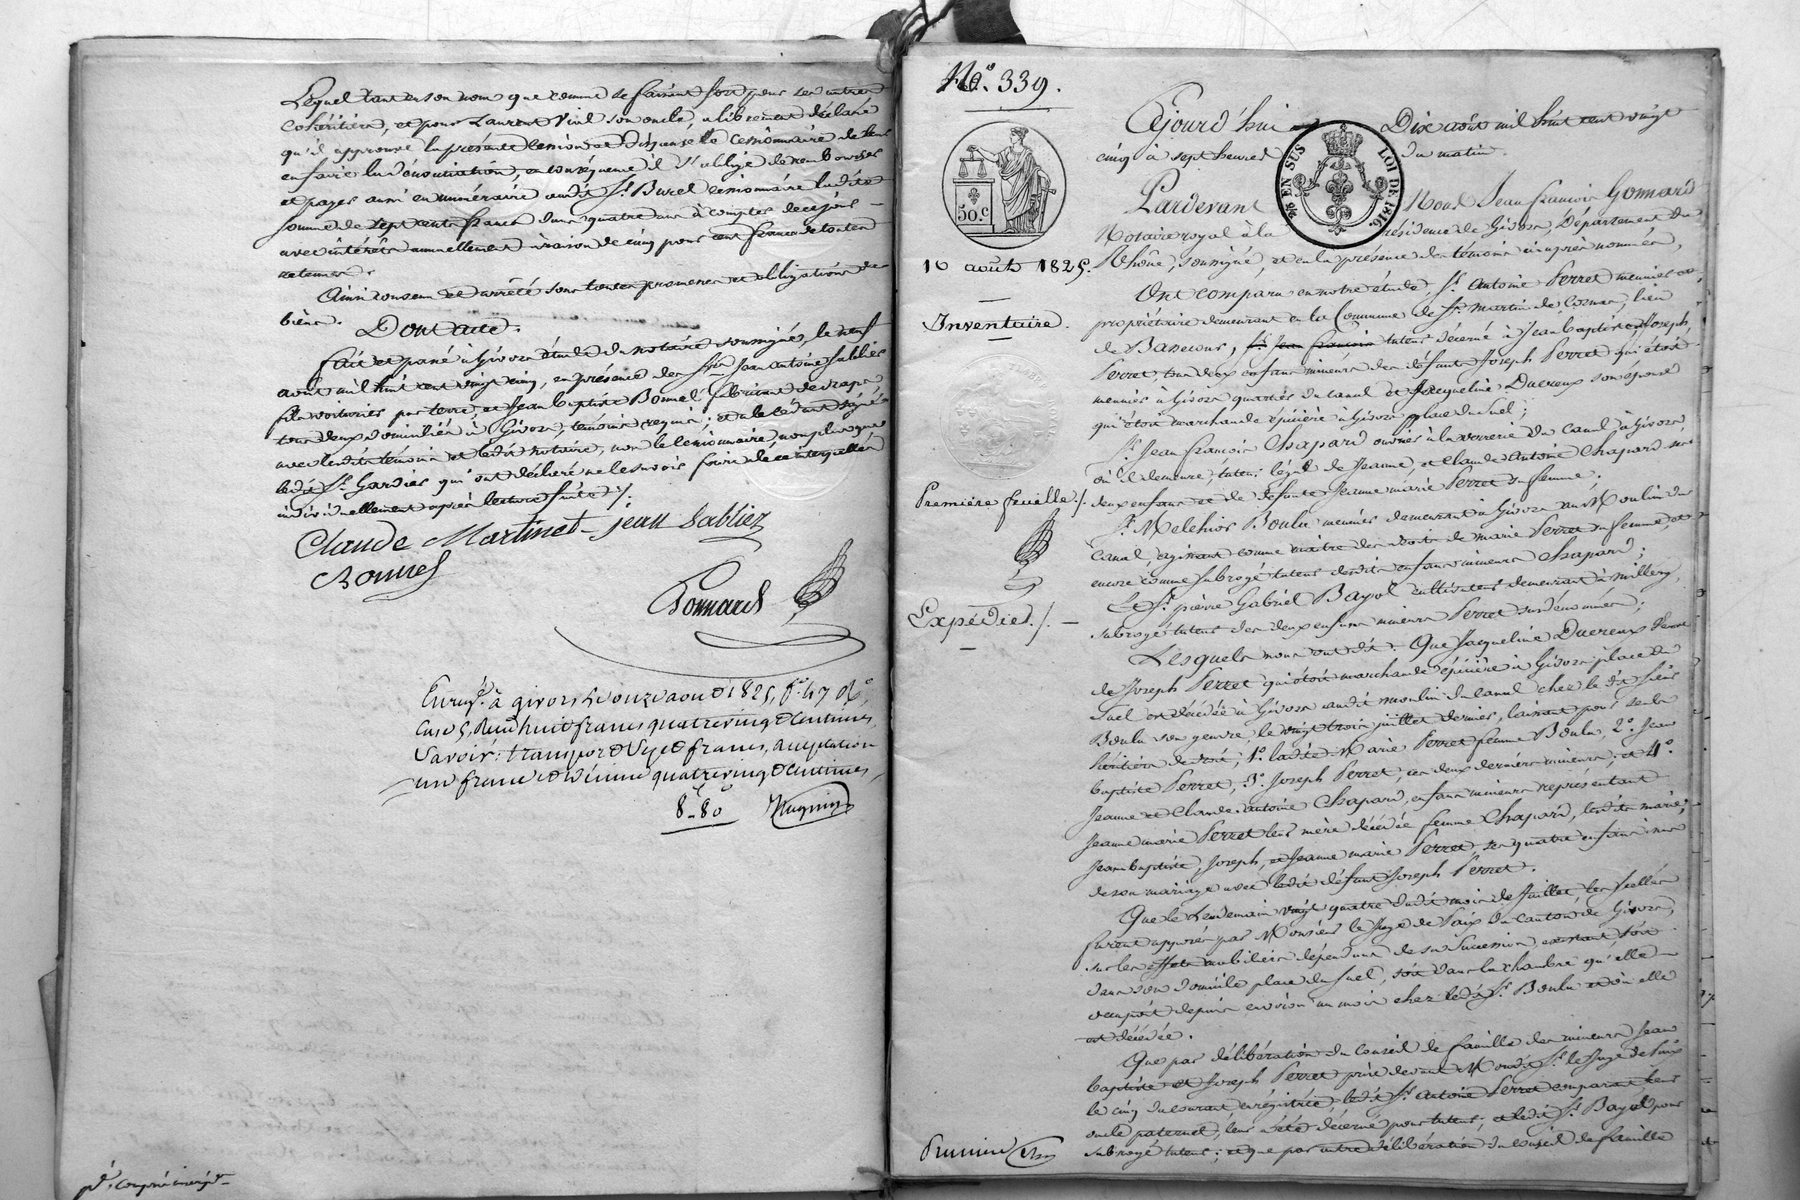 Lequel tant en son nom que comme se faisant fort pour ses autres
cohéritiers, et pour Laurent Viul son oncle, a librement déclaré
qu'il approuve la présente cession et dispense le cessionnaire de leur
en faire la dénonciation, en conséquence il s'oblige de rembourser
et payer aussi en numéraire audit Sr. Burel cessionnaire ladite
somme de sept cents francs dans quatre ans à compter de ce jour
avec intérêts annuellement à raison de cinq pour cent francs de toutes
retenues.
Ainsi convenu et arrêté sous toutes promesses et obligations de
biens. Dont acte.
Fait et passé à Givors étude du notaire soussigné, le neuf
août mil huit cent vingt cinq, en présence des Srs. Jean Antoine Sablier
fils voiturier par terre, et Jean Baptiste Bonnel fabricant de draps,
tous deux domiciliés à Givors, témoins requis; et a le cédant signé
avec lesdits témoins et ledit notaire, non le cessionnaire, non plus que
ledit Sr. Gardier qui ont déclaré ne le savoir faire de ce interpellés
individuellement après lecture faite ./.
Claude Martinet jean Sablier
Bonnel
Gonnard
Enregé. à givors le onze aout 1825, fo. 47 Ro.
case 5, Reçu huit francs quatre vingt centimes,
Savoir: transport Sept francs, acceptation
un franc et dixième quatre vingt centimes,
8f.80c
pd. compris enregt.
No. 339.
50.c
10 août 1825.
Inventaire.
Première feuille ./.
Expédiée ./.
Première
Ajourd'hui Dix août mil huit cent vingt
cinq à sept heures du matin.
Pardevant Nous Jean François Gonnard
Notaire royal à la résidence de Givors, Département du
Rhône, soussigné, et en la présence des témoins ci après nommés,
EN SUS LOI DE 1816
Ont comparu en notre étude, Sr. Antoine Perret meunier et
propriétaire demeurant en la Commune de St. Martin de Cornas, lieu
de Bancour, tuteur décerné à Jean baptiste et Joseph
Perret, tous deux enfans mineurs des défunts Joseph Perret qui était
meunier à Givors quartier du Canal et Jacqueline Ducreux son épouse
qui était marchande épicière à Givors place du Suel;
Sr. Jean François Chapard ouvrier à la verrerie du Canal à Givors,
où il demeure, tuteur légal de Jeanne, et Claude Antoine Chapard ses
deux enfans et de défunte Jeanne Marie Perret sa femme;
Sr. Melchior Boulu meunier demeurant à Givors au Moulin du
Canal, agissant comme maître des droits de Marie Perret sa femme, et
encore comme subrogé tuteur desdits enfans mineurs Chapard;
Et Sr. pierre Gabriel Bayol cultivateur demeurant à Millery,
subrogé tuteur des deux enfans mineurs Perret susdénommés;
Lesquels nous ont dit: Que Jacqueline Ducreux Veuve
de Joseph Perret qui était marchande épicière à Givors place du
Suel est décédée à Givors audit moulin du Canal chez le dit sieur
Boulu son gendre, le vingt trois juillet dernier, laissant pour seuls
héritiers de droit; 1o. ladite Marie Perret femme Boulu, 2o. Jean
baptiste Perret, 3o. Joseph Perret, ces deux derniers mineurs; et 4o.
Jeanne et Claude Antoine Chapard, enfans mineurs représentant
Jeanne marie Perret leur mère décédée femme Chapard, lesdits marie,
Jean baptiste, Joseph, et Jeanne marie Perret, ses quatre enfans issus
de son mariage avec ledit défunt Joseph Perret.
Que le Lendemain vingt quatre dudit mois de Juillet, les scellés
furent apposés par Monsieur le Juge de Paix du canton de Givors,
sur les effets mobiliers dépendans de sa Succession, existant soit
dans son domicile place du Suel, soit dans la chambre qu'elle
occupait depuis environ un mois chez ledit Sr. Boulu et où elle
est décédée.
Que par délibération du Conseil de famille des mineurs Jean
baptiste et Joseph Perret prise devant Mondit Sr. le Juge de Paix
le cinq du courant, enregistrée, ledit Sr. Antoine Perret comparant leur
oncle paternel, leur a été décerné pour tuteur; et ledit Sr. Bayol pour
subrogé tuteur; et que par autre délibération du Conseil de famille